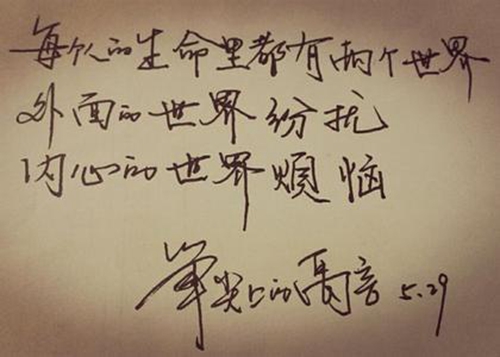 每个人的生命里都有两个世界
外面的世界纷扰
内心的世界煩恼
笔尖上的禹音 5.29